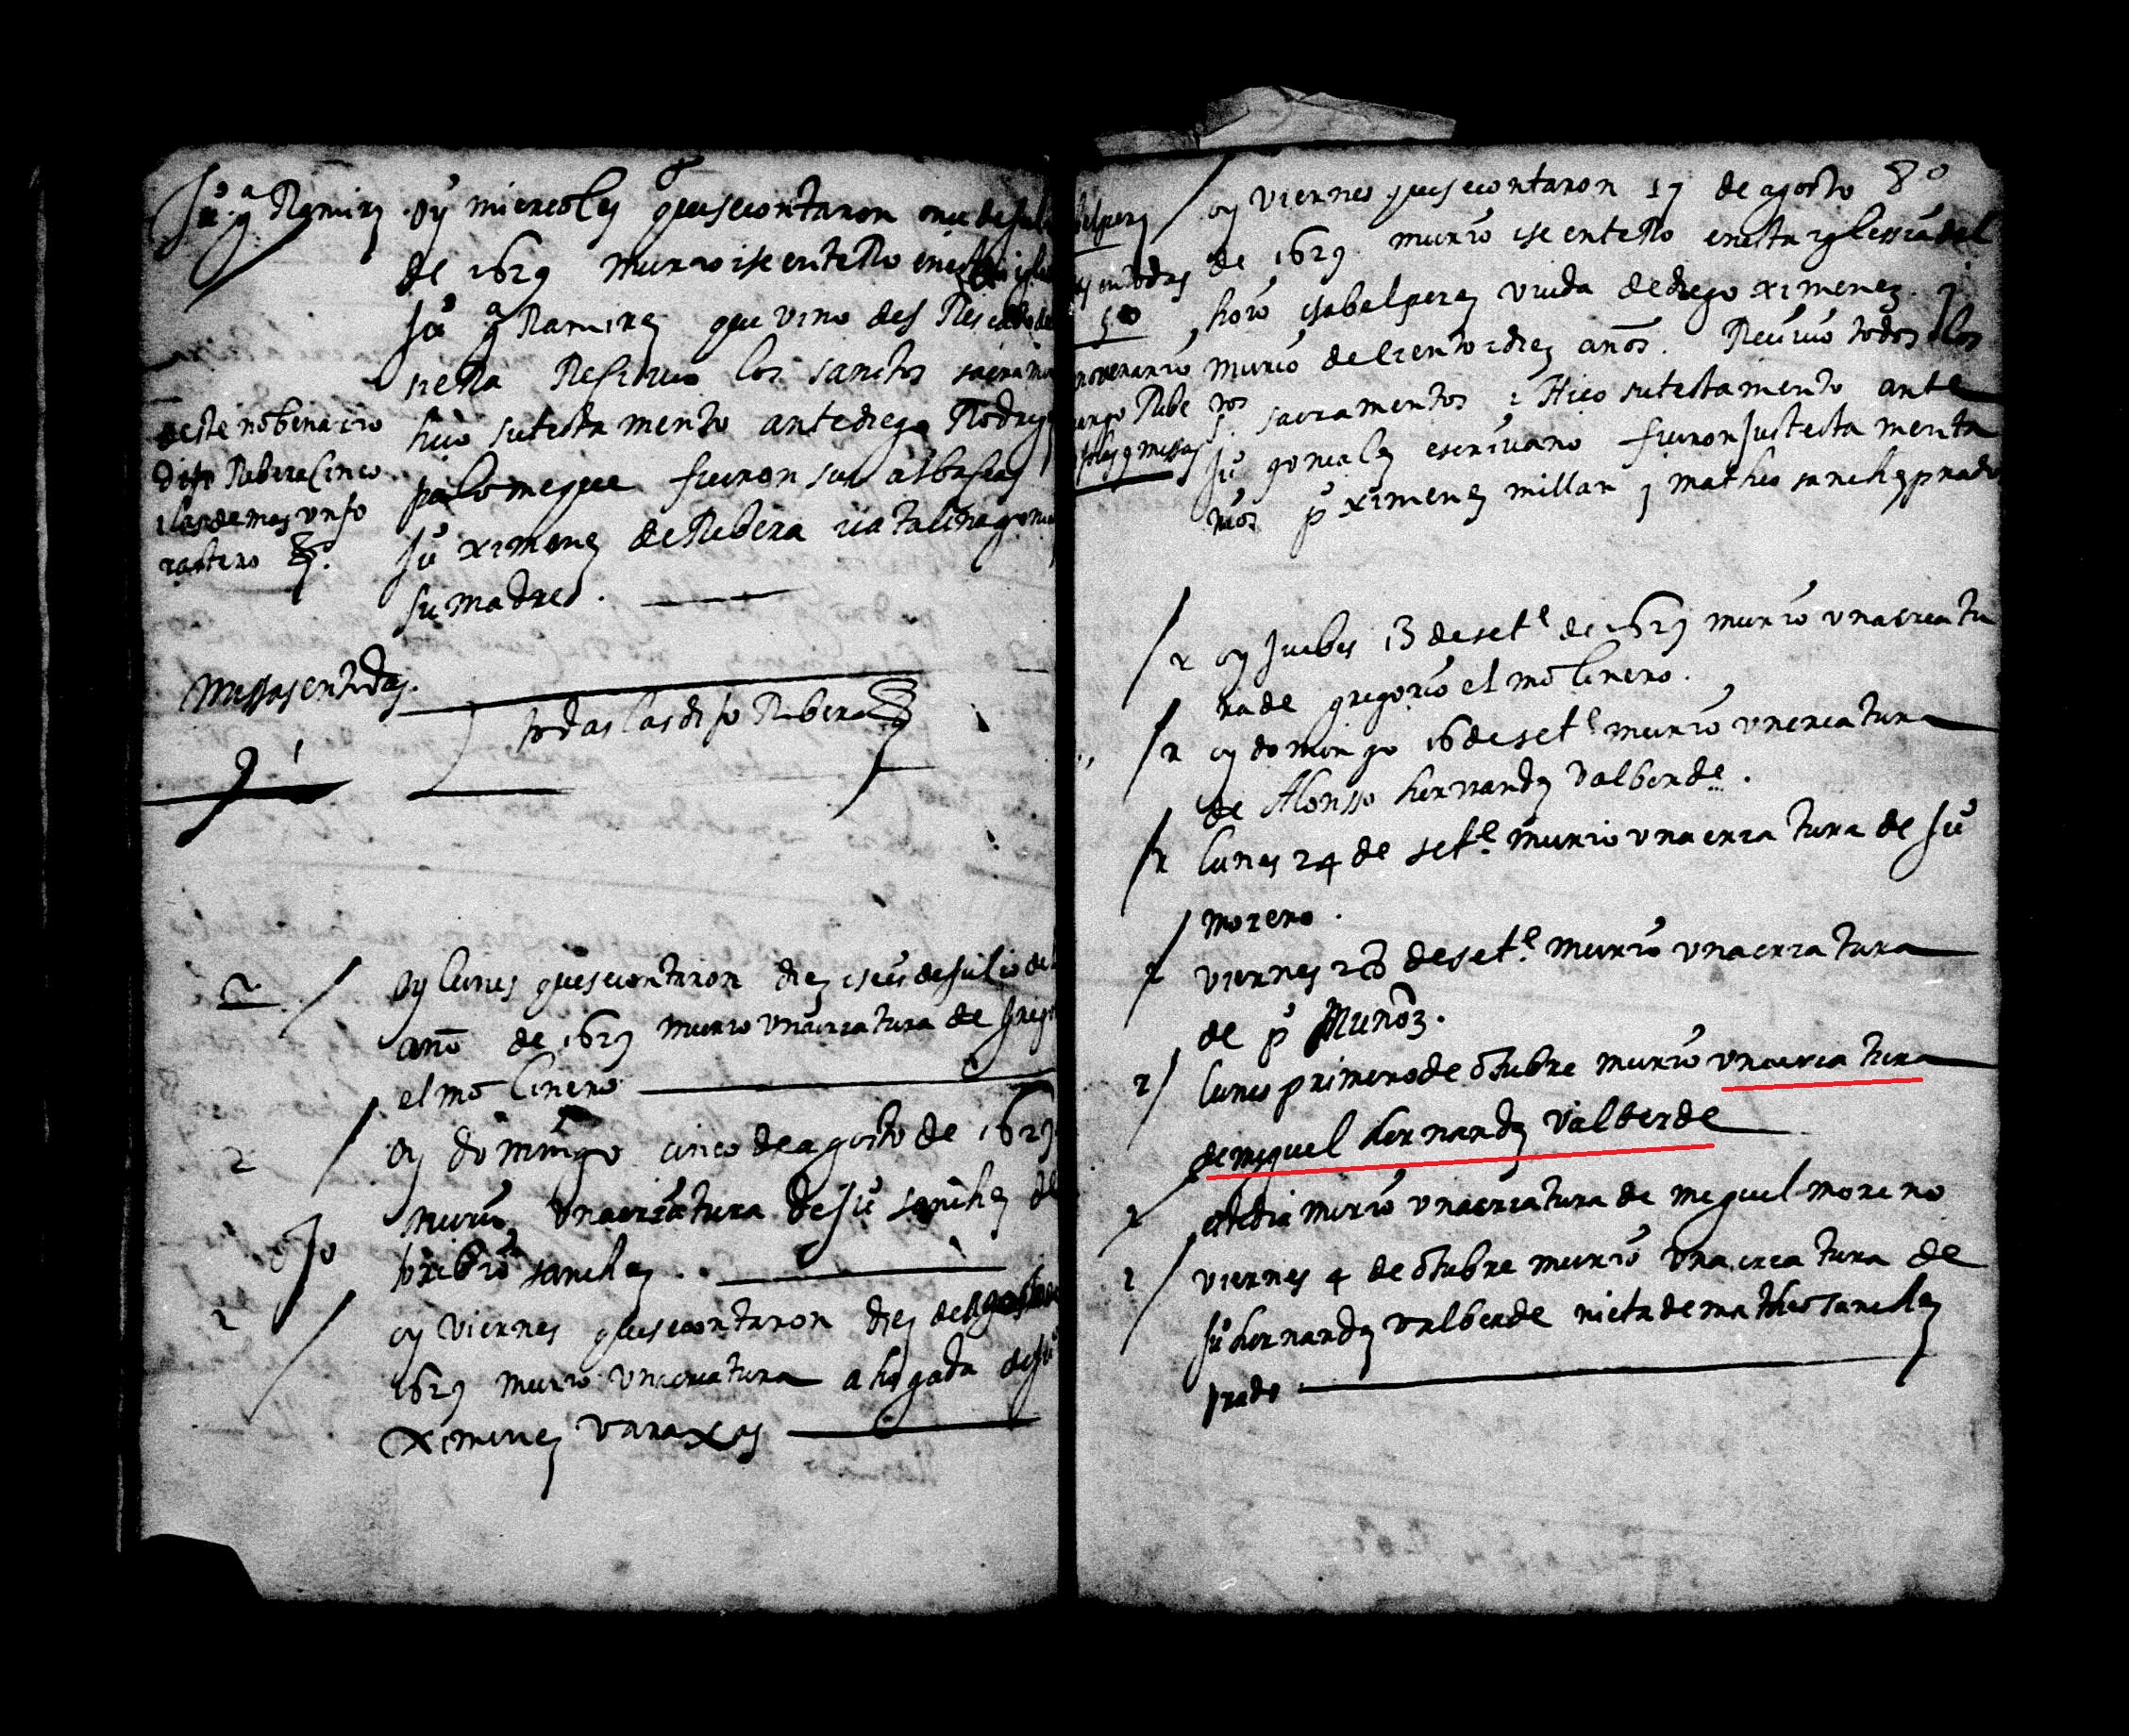 Juº gª Ramirez
oy miercoles que se contaron once de Juli
de 1629 murio i se enterro en esta
Juº gª Ramirez que vino des
hiço su testamento ante diego Rodrig
palomeque fueron sus albaseas
Juº ximenez de Ribera i catalina
su madre
deste nobenario
dijo Ribera cinco
i las demas un fo
rastero
missas entodas
todas las dijo Ribera
oy lunes que se contaron diez i seis de Julio de
año de 1629 murio una criatura de Grego
el molinero
2
oy domingo cinco de agosto de 1629
murio una criatura de Juº sanchez de
sanchez
2
oy viernes que se contaron diez de agosto
1629 murio una criatura ahogada de Ju
ximenez varaxas
oy viernes que se contaron 17 de agosto 80
de 1629 murio i se enterro en esta iglessia del
horo isabel perez viuda de diego ximenez
murio de ciento i diez años. Recivio todos los
sacramentos i Hiço su testamento ante
Juº gonçalez escrivano fueron sus testamenta
rios pº ximenez millan y matheo sanchez prado
en todas
novenario
messas
2 oy Juebes 13 de setᵉ de 1629 murio una creatu
ra de gregorio el molinero.
2 oy domingo 16 de setᵉ murio un creatura
de Alonsso hernandez valberde.
2 lunes 24 de setᵉ murio una criatura de Juº
moreno.
2 viernes 28 de setᵉ murio una criatura
de pº Muñoz.
2 lunes primero de otubre murio una criatura
de miguel hernandez valberde
2 este dia murio una criatura de miguel moreno
2 viernes 4 de otubre murio una creatura de
Juº hernandez valberde nieta de matheo sanchez
prado